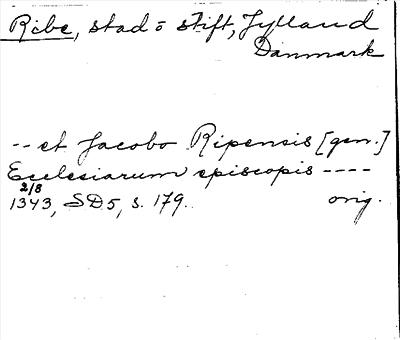 Ribe, stad o stift, Jylland
Danmark
-- et Jacobo Ripensis [gen.]
Ecclesiarum episcopis ----
2/8
1343, SD5, s. 179.
orig.